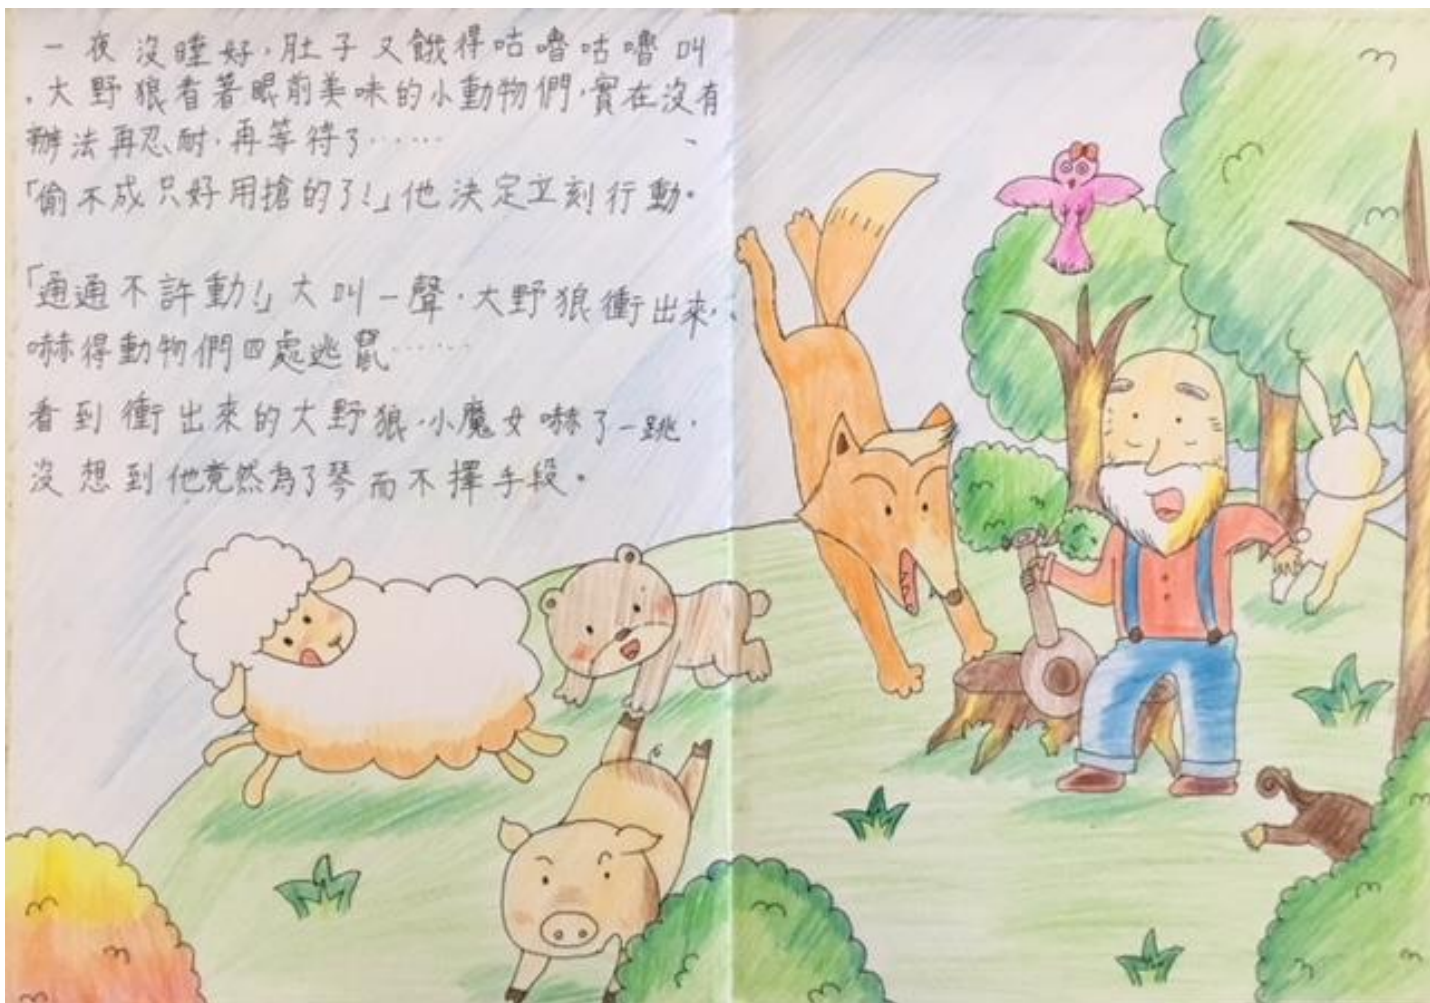 一夜沒睡好,肚子又餓得咕嚕咕嚕叫
,大野狼看著眼前美味的小動物們,實在沒有
辦法再忍耐,再等待了……
「偷不成只好用搶的了!」他決定立刻行動。
「通通不許動!」大叫一聲,大野狼衝出來,
嚇得動物們四處逃鼠……
看到衝出來的大野狼,小魔女嚇了一跳,
沒想到他竟然為了琴而不擇手段。